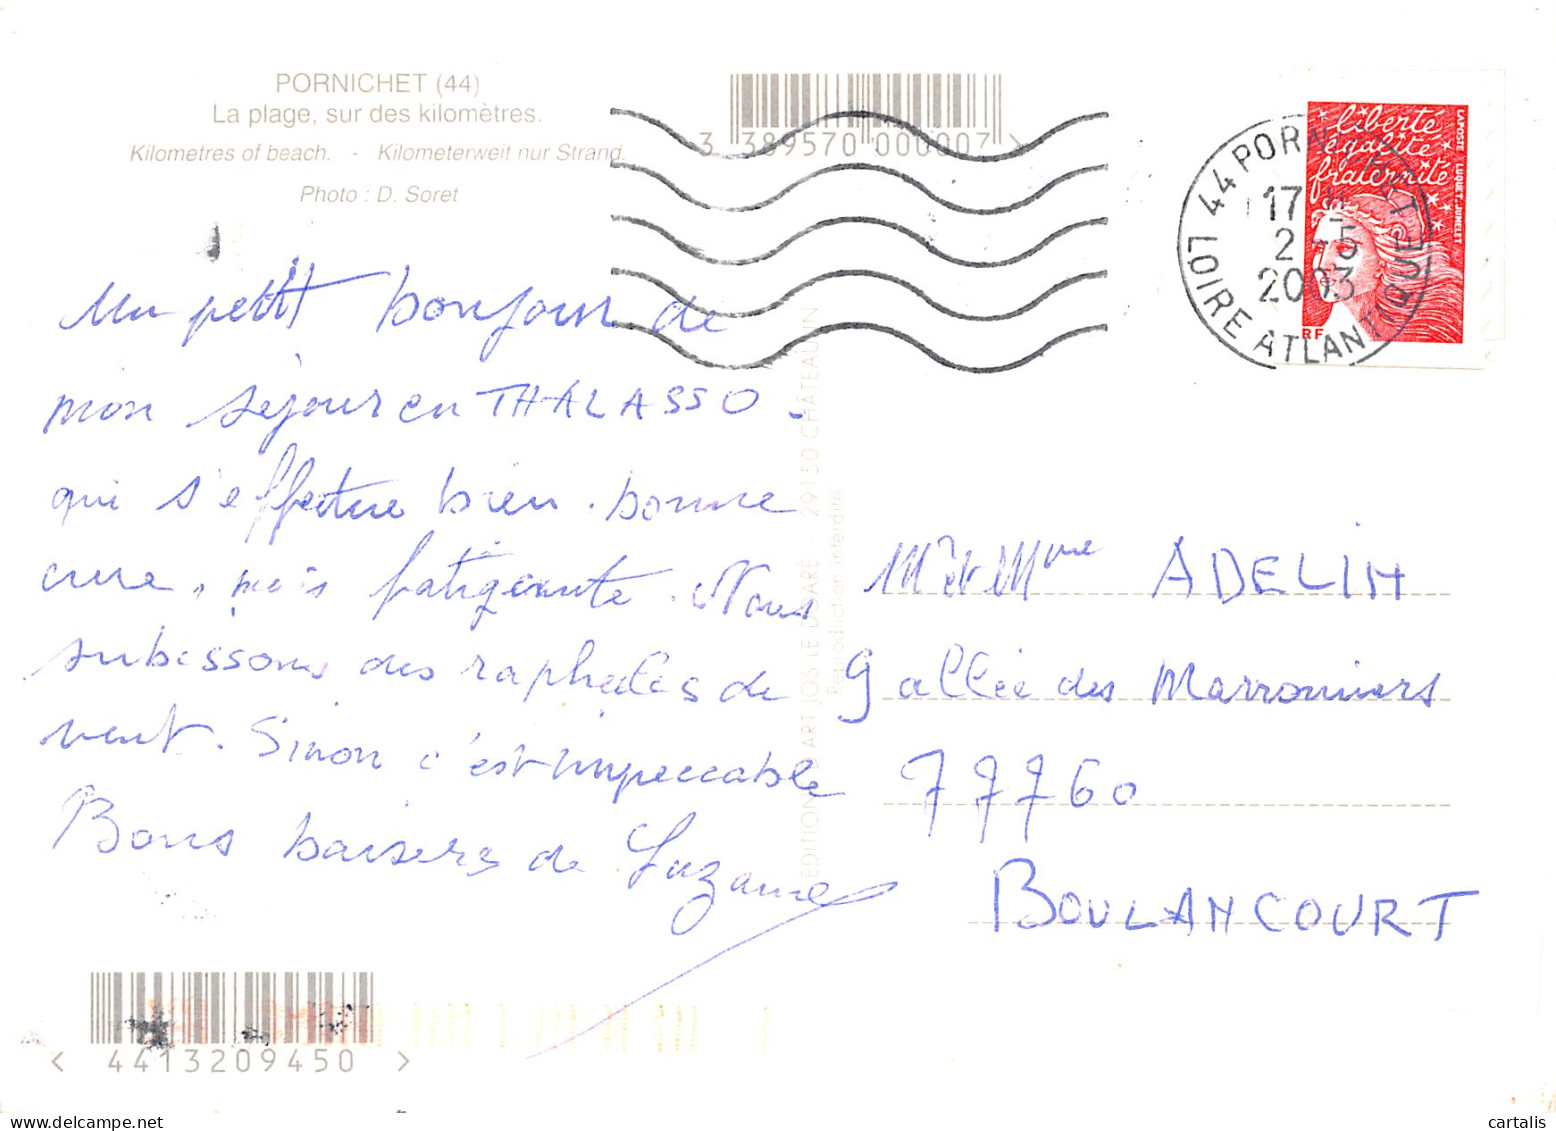 PORNICHET (44)
La plage, sur des kilomètres.
Kilometres of beach. - Kilometerweit nur Strand.
Photo : D. Soret
3 389570 000007 >
44 PORNICHET
17 H
2 -5
2003
LOIRE ATLANTIQUE
liberté
égalité
fraternité
LA POSTE LUQUET JUMELET
RF
Un petit bonjour de
mon séjour en THALASSO -
qui s'effectue bien. bonne
cure, mais fatigante. Nous
subissons des raphales de
vent. Sinon c'est impeccable
Bons baisers de Suzanne
EDITIONS D'ART JOS LE DOARÉ - 29150 CHATEAULIN
Reproduction interdite
Mr et Mme ADELIN
9 allée des Marronniers
77760
BOULANCOURT
< 4413209450 >
cartalis